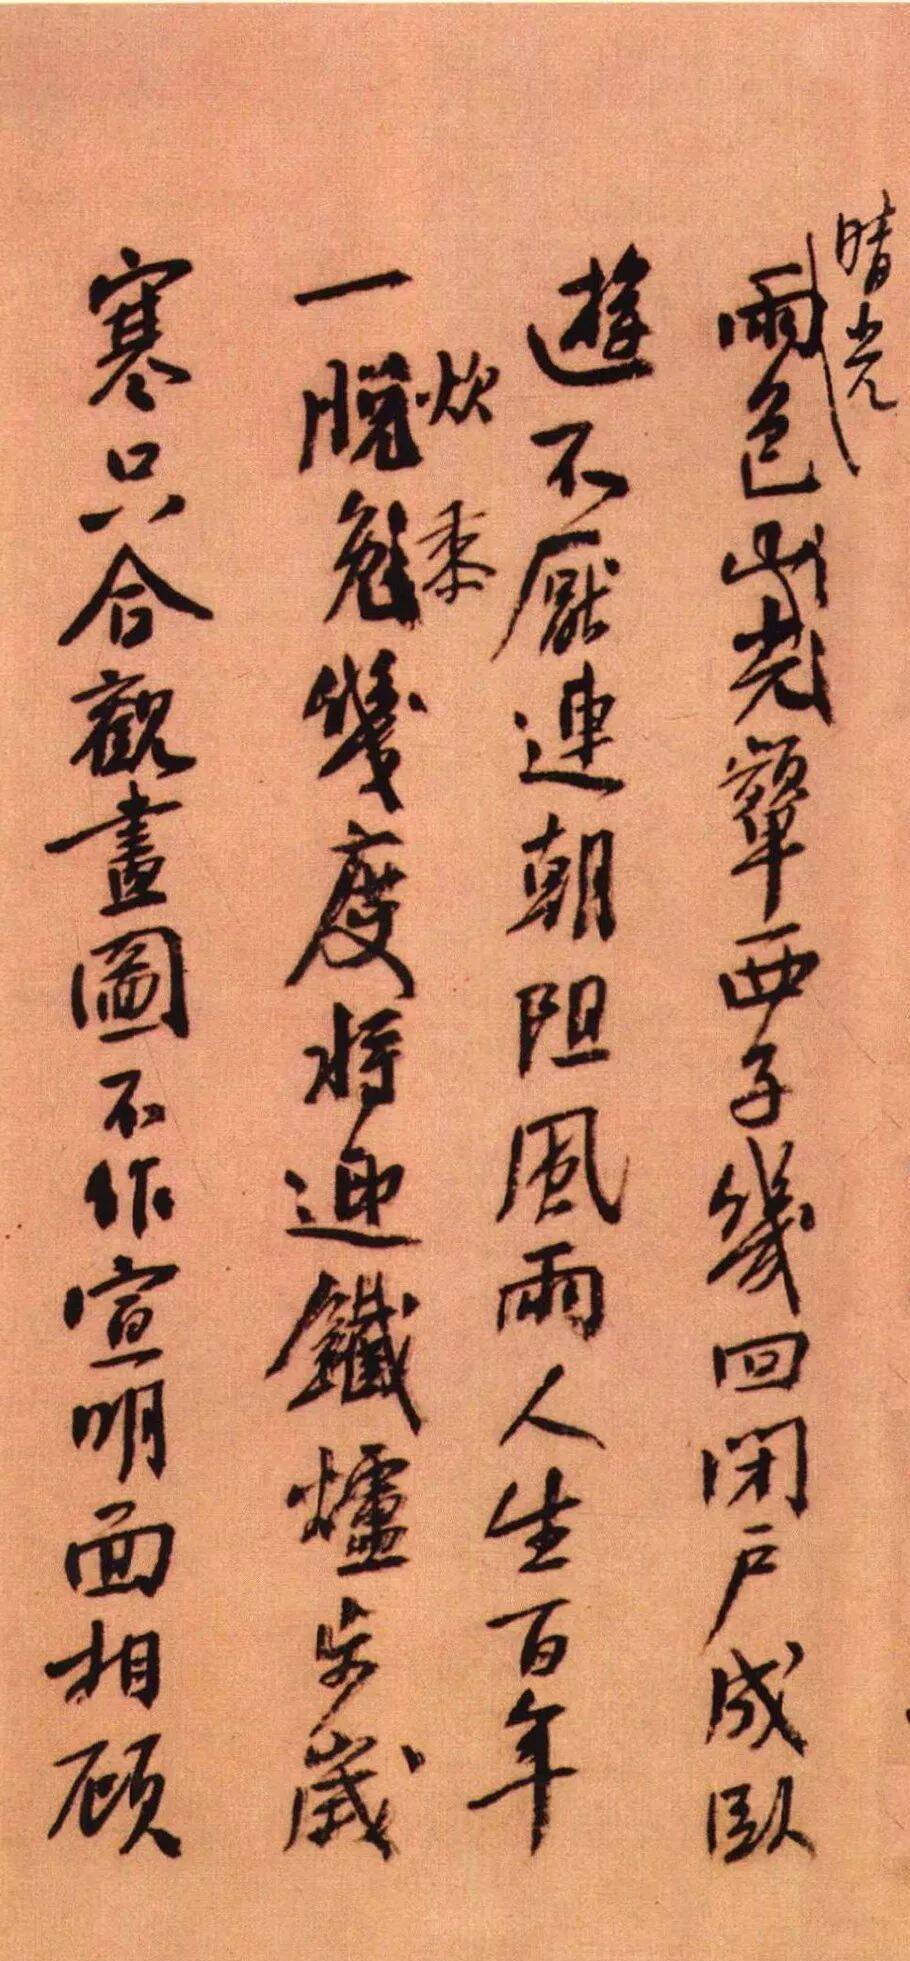 晴光
雨色山光顰西子幾回閉戶成臥
遊不厭連朝阻風雨人生百年
炊黍
一脫兔幾度將迎鐵爐步歲
寒只合觀畫圖不作宣明面相顧